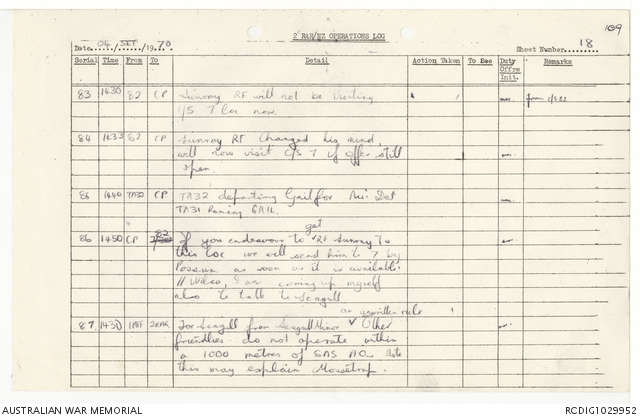 109
2 RAR/NZ OPERATIONS LOG
Date 04 / SEP / 1970 Sheet Number 18
Serial Time From To Detail Action Taken To See Duty Offrs Init. Remarks
83 1430 82 CP Sunray RF will not be visiting
C/S 7 loc now. from C/S 82
84 1433 82 CP Sunray RF Changed his mind
will now visit C/S 7 if offer still
open.
85 1440 TA32 CP TA32 departing Gail for Det
TA31 Remaing GAIL.
86 1450 CP 82 If you endeavour to get RF Sunray to
this loc we will send him to 7 by
Possum as soon as it is available.
// Wilco, I am coming up myself
also to talk to Seagull
as unwritten rule
87 1450 For Seagull from Seagull Minor Other
friendlies do not operate within
a 1000 metres of SAS AO. Note
this may explain Mousetrap.
AUSTRALIAN WAR MEMORIAL RCDIG1029952